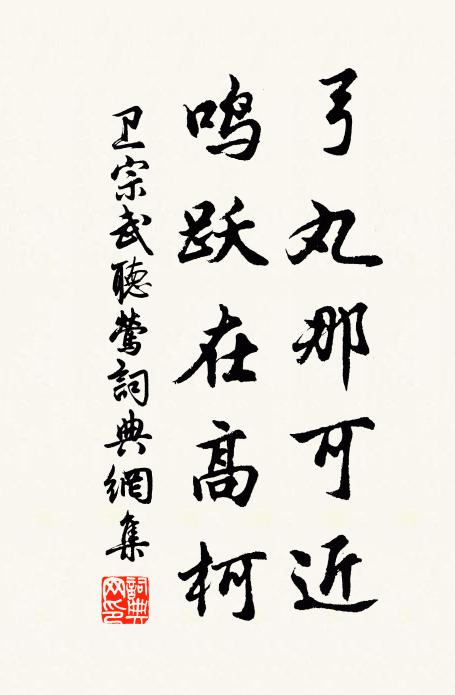 弓丸那可近
鸣跃在高柯
卫宗武聽莺詞典網集
詞典网印